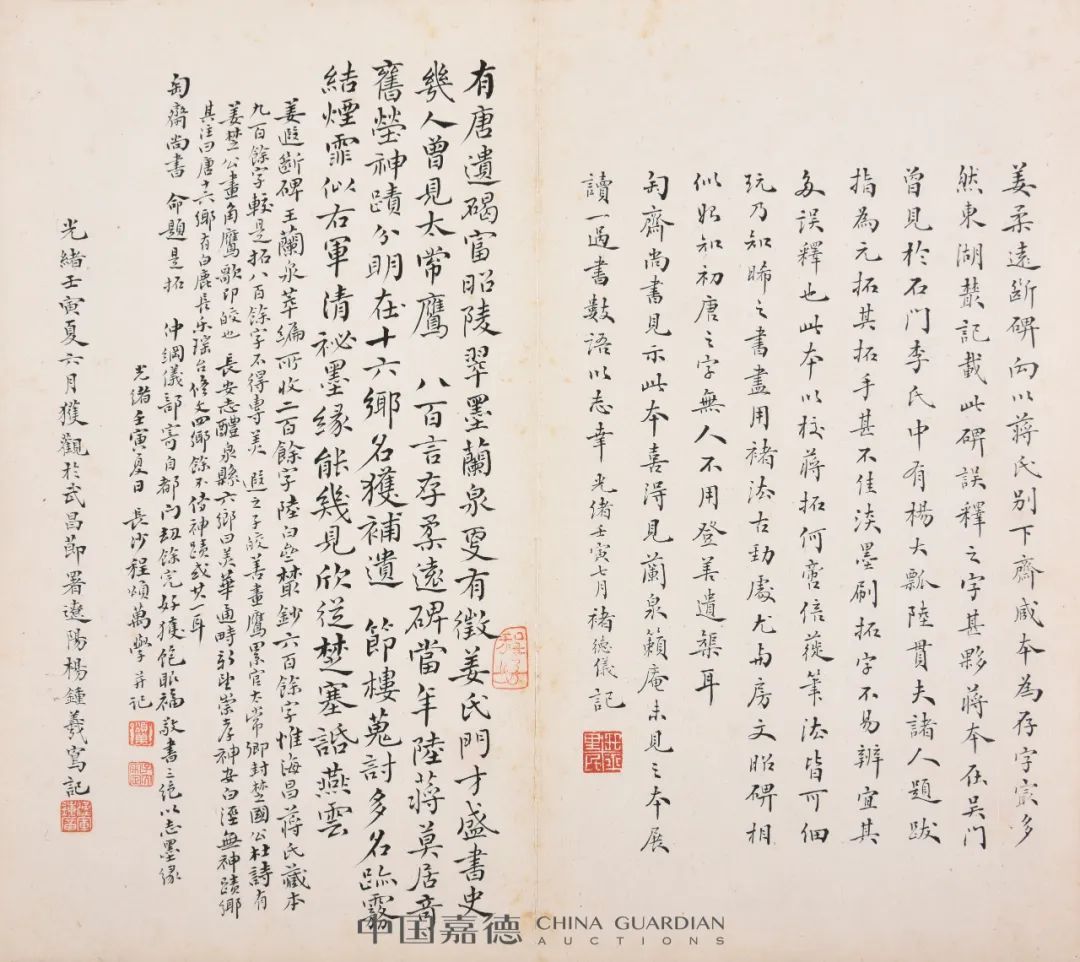 姜柔遠斷碑向以蔣氏別下齋咸本為存字最多
然東湖叢記載此碑誤釋之字甚夥蔣本在吳門
曾見於石門李氏中有楊大瓢陸貫夫諸人題跋
指為元拓其拓手甚不佳淡墨刷拓字不易辨宜其
多誤釋也此本以校蔣拓何啻倍蓰筆法皆可細
玩乃知晞之書盡用褚法古勁處尤與房文昭碑相
似始知初唐之字無人不用登善遺榘耳
匋齋尚書見示此本喜得見蘭泉籟庵未見之本展
讀一過書數語以志幸 光緒壬寅七月褚德儀記
有唐遺碣富昭陵翠墨蘭泉夏有徵姜氏門才盛書史
幾人曾見太常鷹 八百言存柔遠碑當年陸蔣莫居奇
舊塋神蹟分明在十六鄉名獲補遺 節樓蒐討多名跡靄
結煙霏似右軍清祕墨緣能幾見欣從楚塞話燕雲
姜遐斷碑王蘭泉萃編所收二百餘字陸白齋叢鈔六百餘字惟海昌蔣氏藏本
九百餘字較是拓八百餘字不得專美 遐之子皎善畫鷹累官太常卿封楚國公杜詩有
姜楚公畫角鷹歌即皎也 長安志醴泉縣六鄉曰美華通時新望崇孝神安白涇無神蹟鄉
其注曰唐十六鄉有白鹿長樂瑤台修文四鄉餘不備神蹟或其一耳
匋齋尚書 命題是拓 仲綱儀部寄自都門劫餘完好獲飽眼福敬書三絕以志墨緣
光緒壬寅夏日 長沙程頌萬學并記
光緒壬寅夏六月獲觀於武昌節署遼陽楊鍾羲寫記
中国嘉德 CHINA GUARDIAN
AUCTIONS